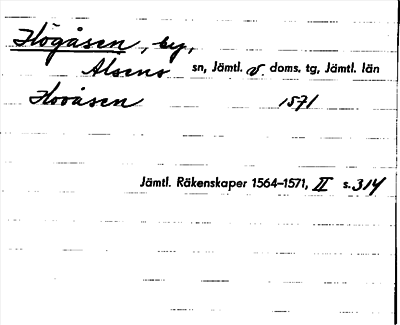 Högåsen, by,
Alsens sn, Jämtl. v. doms. tg, Jämtl. län
Hovåsen 1571
Jämtl. Räkenskaper 1564–1571, II s. 314